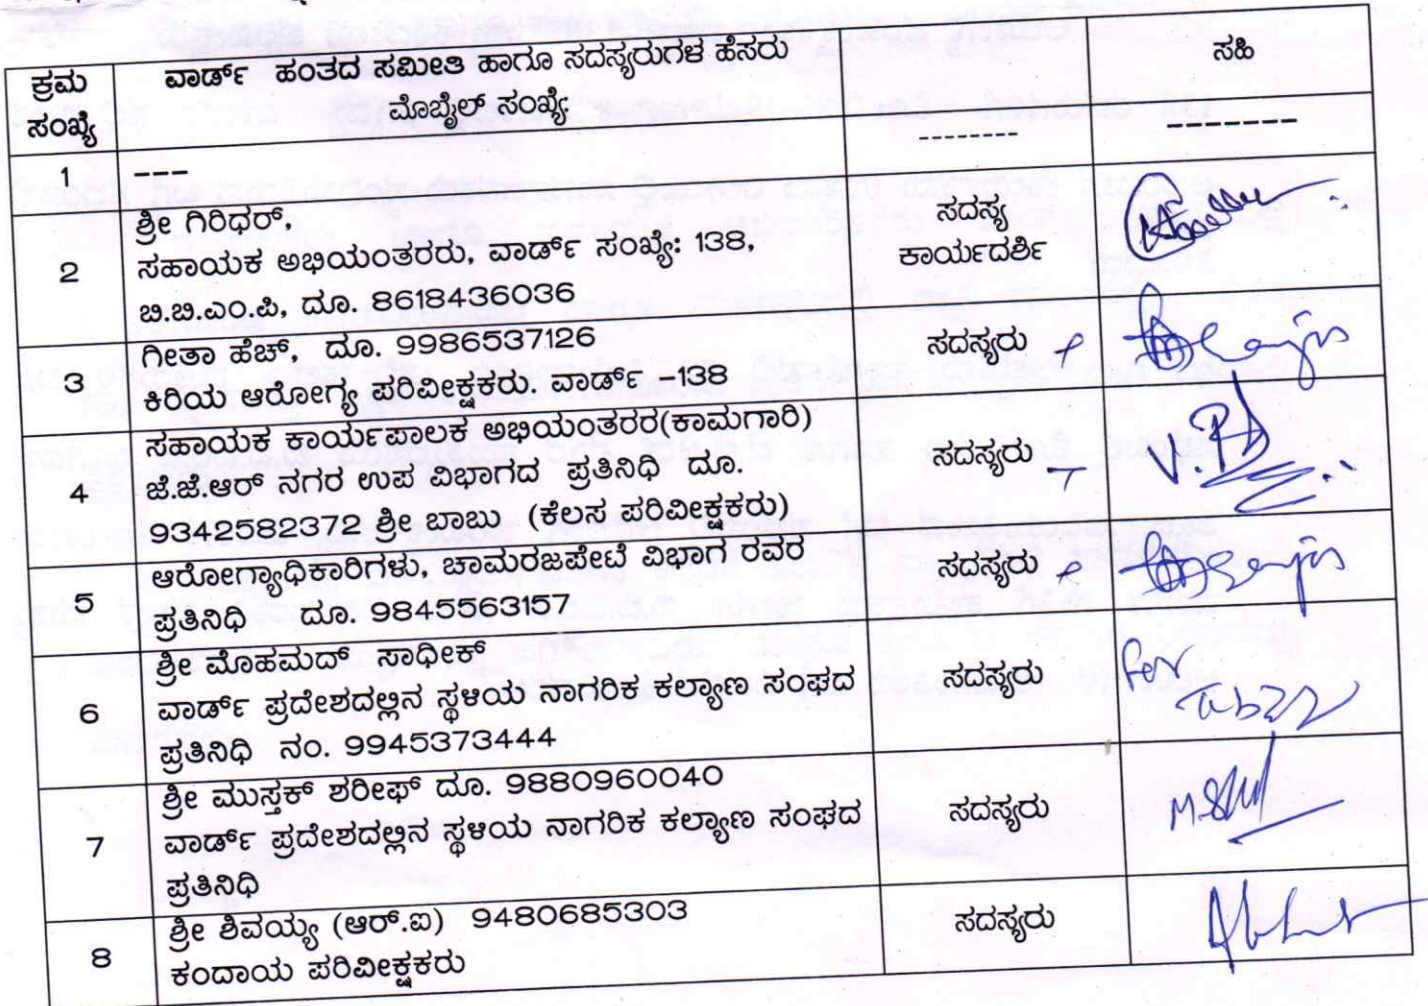 ಕ್ರಮ ಸಂಖ್ಯೆ
ವಾರ್ಡ್ ಹಂತದ ಸಮೀತಿ ಹಾಗೂ ಸದಸ್ಯರುಗಳ ಹೆಸರು
ಮೊಬೈಲ್ ಸಂಖ್ಯೆ
-------
ಸಹಿ
--------
1 ---
2
ಶ್ರೀ ಗಿರಿಧರ್,
ಸಹಾಯಕ ಅಭಿಯಂತರರು, ವಾರ್ಡ್ ಸಂಖ್ಯೆ: 138,
ಬಿ.ಬಿ.ಎಂ.ಪಿ, ದೂ. 8618436036
ಸದಸ್ಯ
ಕಾರ್ಯದರ್ಶಿ
3
ಗೀತಾ ಹೆಚ್, ದೂ. 9986537126
ಕಿರಿಯ ಆರೋಗ್ಯ ಪರಿವೀಕ್ಷಕರು ವಾರ್ಡ್ -138
ಸದಸ್ಯರು
4
ಸಹಾಯಕ ಕಾರ್ಯಪಾಲಕ ಅಭಿಯಂತರರ(ಕಾಮಗಾರಿ)
ಜೆ.ಜೆ.ಆರ್ ನಗರ ಉಪ ವಿಭಾಗದ ಪ್ರತಿನಿಧಿ ದೂ.
9342582372 ಶ್ರೀ ಬಾಬು (ಕೆಲಸ ಪರಿವೀಕ್ಷಕರು)
ಸದಸ್ಯರು
5
ಆರೋಗ್ಯಾಧಿಕಾರಿಗಳು, ಚಾಮರಜಪೇಟೆ ವಿಭಾಗ ರವರ
ಪ್ರತಿನಿಧಿ ದೂ. 9845563157
ಸದಸ್ಯರು
6
ಶ್ರೀ ಮೊಹಮದ್ ಸಾಧೀಕ್
ವಾರ್ಡ್ ಪ್ರದೇಶದಲ್ಲಿನ ಸ್ಥಳಿಯ ನಾಗರಿಕ ಕಲ್ಯಾಣ ಸಂಘದ
ಪ್ರತಿನಿಧಿ ನಂ. 9945373444
ಸದಸ್ಯರು
7
ಶ್ರೀ ಮುಸ್ತಕ್ ಶರೀಫ್ ದೂ. 9880960040
ವಾರ್ಡ್ ಪ್ರದೇಶದಲ್ಲಿನ ಸ್ಥಳಿಯ ನಾಗರಿಕ ಕಲ್ಯಾಣ ಸಂಘದ
ಪ್ರತಿನಿಧಿ
ಸದಸ್ಯರು
8
ಶ್ರೀ ಶಿವಯ್ಯ (ಆರ್.ಐ) 9480685303
ಕಂದಾಯ ಪರಿವೀಕ್ಷಕರು
ಸದಸ್ಯರು